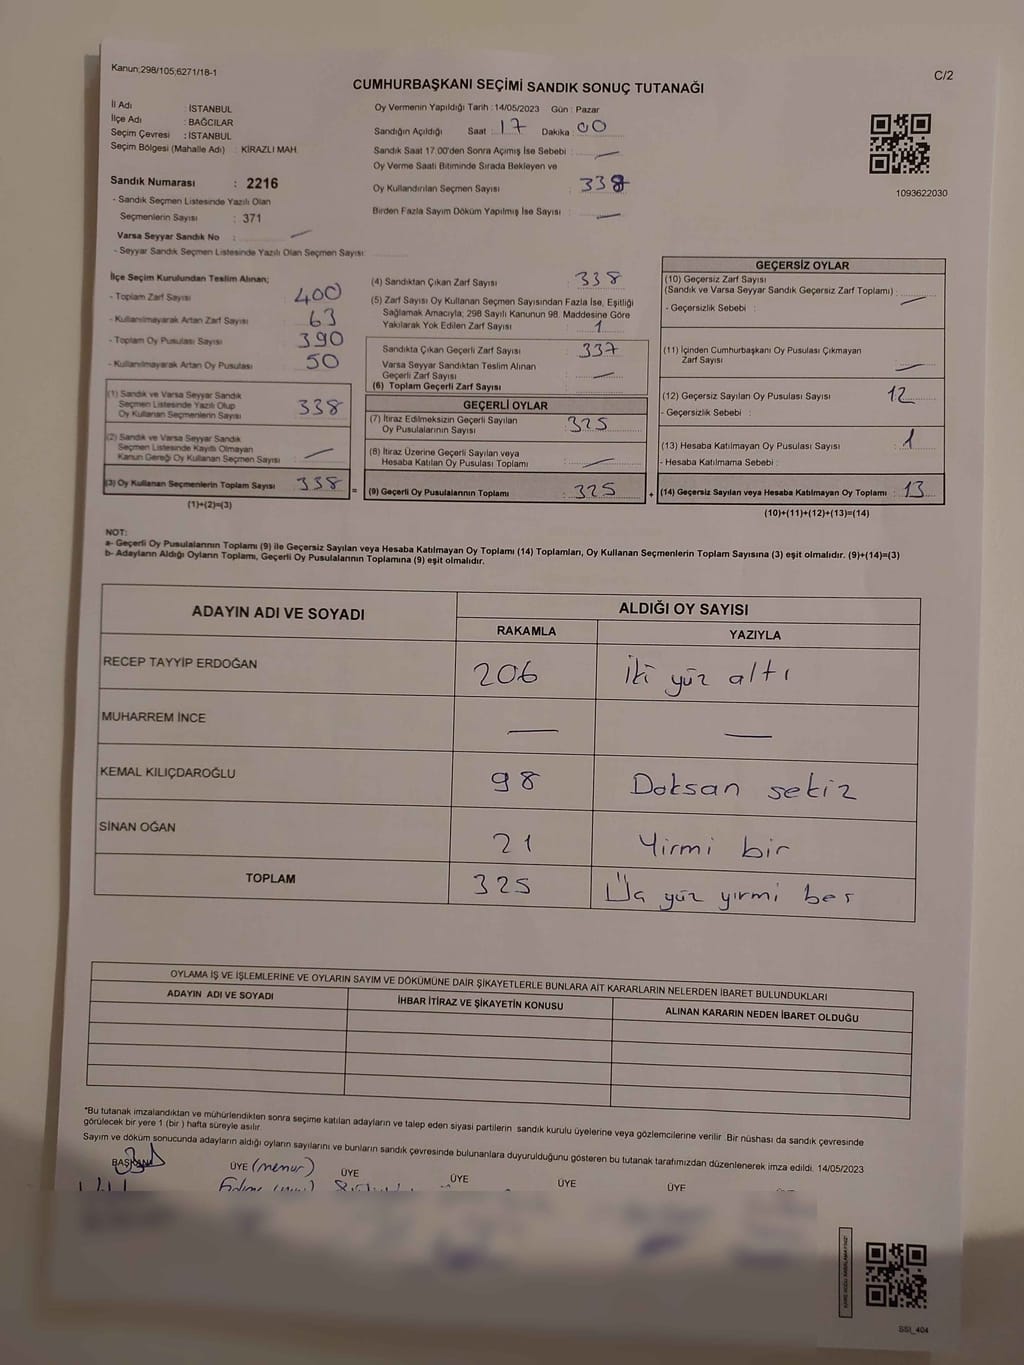 Kanun;298/105;6271/18-1
C/2
CUMHURBAŞKANI SEÇİMİ SANDIK SONUÇ TUTANAĞI
İl Adı : İSTANBUL
İlçe Adı : BAĞCILAR
Seçim Çevresi : İSTANBUL
Seçim Bölgesi (Mahalle Adı) : KİRAZLI MAH.
Sandık Numarası : 2216
- Sandık Seçmen Listesinde Yazılı Olan
Seçmenlerin Sayısı : 371
Varsa Seyyar Sandık No : —
- Seyyar Sandık Seçmen Listesinde Yazılı Olan Seçmen Sayısı :
Oy Vermenin Yapıldığı Tarih : 14/05/2023 Gün : Pazar
Sandığın Açıldığı Saat : 17 Dakika : 00
Sandık Saat 17.00'den Sonra Açımış İse Sebebi : —
Oy Verme Saati Bitiminde Sırada Bekleyen ve
Oy Kullandırılan Seçmen Sayısı : 338
Birden Fazla Sayım Döküm Yapılmış İse Sayısı : —
1093622030
İlçe Seçim Kurulundan Teslim Alınan;
- Toplam Zarf Sayısı : 400
- Kullanılmayarak Artan Zarf Sayısı : 63
- Toplam Oy Pusulası Sayısı : 390
- Kullanılmayarak Artan Oy Pusulası : 50
(1) Sandık ve Varsa Seyyar Sandık
Seçmen Listesinde Yazılı Olup
Oy Kullanan Seçmenlerin Sayısı : 338
(2) Sandık ve Varsa Seyyar Sandık
Seçmen Listesinde Kayıtlı Olmayan
Kanun Gereği Oy Kullanan Seçmen Sayısı : —
(3) Oy Kullanan Seçmenlerin Toplam Sayısı : 338
(1)+(2)=(3)
(4) Sandıktan Çıkan Zarf Sayısı : 338
(5) Zarf Sayısı Oy Kullanan Seçmen Sayısından Fazla İse, Eşitliği
Sağlamak Amacıyla; 298 Sayılı Kanunun 98. Maddesine Göre
Yakılarak Yok Edilen Zarf Sayısı : 1
Sandıkta Çıkan Geçerli Zarf Sayısı : 337
Varsa Seyyar Sandıktan Teslim Alınan
Geçerli Zarf Sayısı : —
(6) Toplam Geçerli Zarf Sayısı :
GEÇERLİ OYLAR
(7) İtiraz Edilmeksizin Geçerli Sayılan
Oy Pusulalarının Sayısı : 325
(8) İtiraz Üzerine Geçerli Sayılan veya
Hesaba Katılan Oy Pusulası Toplamı : —
= (9) Geçerli Oy Pusulalarının Toplamı : 325
GEÇERSİZ OYLAR
(10) Geçersiz Zarf Sayısı
(Sandık ve Varsa Seyyar Sandık Geçersiz Zarf Toplamı) : —
- Geçersizlik Sebebi :
(11) İçinden Cumhurbaşkanı Oy Pusulası Çıkmayan
Zarf Sayısı : —
(12) Geçersiz Sayılan Oy Pusulası Sayısı : 12
- Geçersizlik Sebebi :
(13) Hesaba Katılmayan Oy Pusulası Sayısı : 1
- Hesaba Katılmama Sebebi :
+ (14) Geçersiz Sayılan veya Hesaba Katılmayan Oy Toplamı : 13
(10)+(11)+(12)+(13)=(14)
NOT:
a- Geçerli Oy Pusulalarının Toplamı (9) ile Geçersiz Sayılan veya Hesaba Katılmayan Oy Toplamı (14) Toplamları, Oy Kullanan Seçmenlerin Toplam Sayısına (3) eşit olmalıdır. (9)+(14)=(3)
b- Adayların Aldığı Oyların Toplamı, Geçerli Oy Pusulalarının Toplamına (9) eşit olmalıdır.
ADAYIN ADI VE SOYADI
ALDIĞI OY SAYISI
RAKAMLA YAZIYLA
RECEP TAYYİP ERDOĞAN 206 İki yüz altı
MUHARREM İNCE — —
KEMAL KILIÇDAROĞLU 98 Doksan sekiz
SİNAN OĞAN 21 Yirmi bir
TOPLAM 325 Üç yüz yirmi beş
OYLAMA İŞ VE İŞLEMLERİNE VE OYLARIN SAYIM VE DÖKÜMÜNE DAİR ŞİKAYETLERLE BUNLARA AİT KARARLARIN NELERDEN İBARET BULUNDUKLARI
ADAYIN ADI VE SOYADI İHBAR İTİRAZ VE ŞİKAYETİN KONUSU ALINAN KARARIN NEDEN İBARET OLDUĞU
*Bu tutanak imzalandıktan ve mühürlendikten sonra seçime katılan adayların ve talep eden siyasi partilerin sandık kurulu üyelerine veya gözlemcilerine verilir. Bir nüshası da sandık çevresinde
görülecek bir yere 1 (bir ) hafta süreyle asılır.
Sayım ve döküm sonucunda adayların aldığı oyların sayılarını ve bunların sandık çevresinde bulunanlara duyurulduğunu gösteren bu tutanak tarafımızdan düzenlenerek imza edildi. 14/05/2023
BAŞKAN ÜYE (memur) ÜYE ÜYE ÜYE ÜYE
SSİ_404